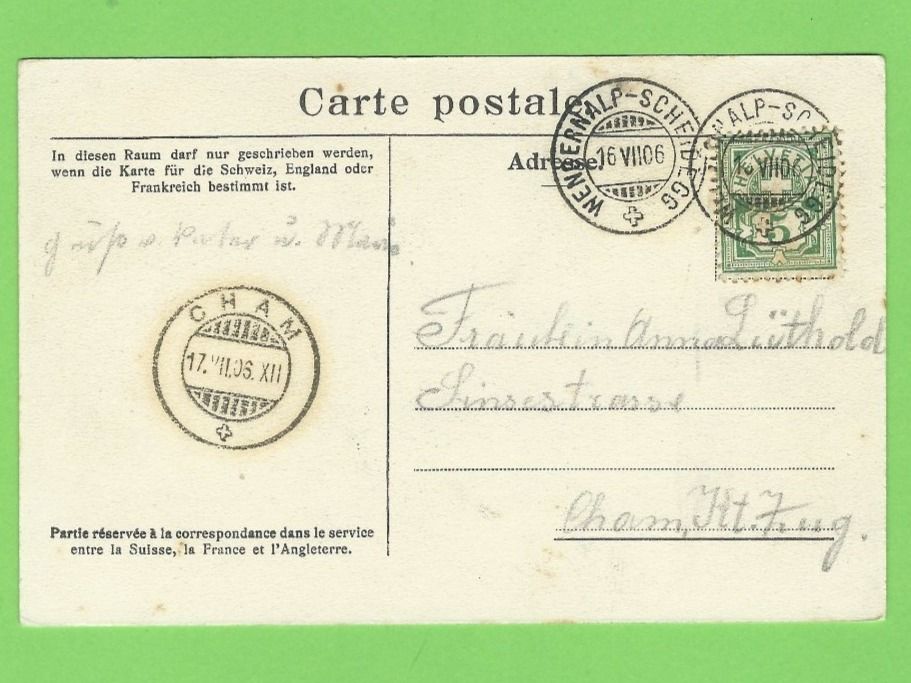 Carte postale
WENGERNALP-SCHEIDEGG
16 VII 06
5
Adresse.
In diesen Raum darf nur geschrieben werden,
wenn die Karte für die Schweiz, England oder
Frankreich bestimmt ist.
Gruß v. Vater u. Marie
CHAM
17. VII.06. XII
Fräulein Anna Lüthold
Sinserstrasse
Cham, Kt. Zug.
Partie réservée à la correspondance dans le service
entre la Suisse, la France et l'Angleterre.